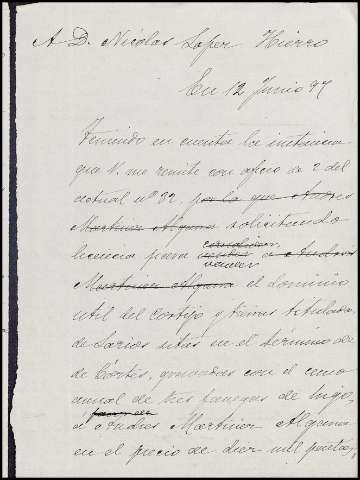 A D. Nicolas Lopez Hierro
En 12 Junio 97
Teniendo en cuenta la instancia
que V. me remite con oficio de 2 del
actual nº 32, por la que Andres
Martinez Algarra solicitando
licencia para
vender
a Andres
Martinez Algarra el dominio
util del Cortijo y tierras titulado
de Larios sitas en el término de
de Cortes, gravadas con el censo
anual de tres fanegas de trigo,
a Andres Martinez Algarra
en el precio de diez mil pesetas,